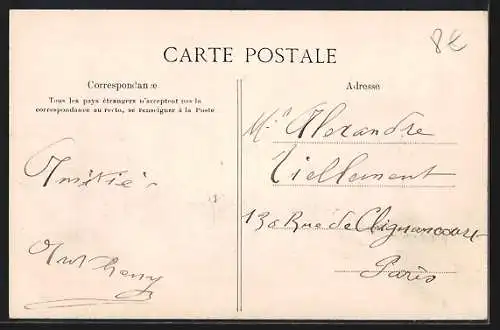 8€
CARTE POSTALE
Correspondance
Tous les pays étrangers n'acceptent pas la
correspondance au recto, se renseigner à la Poste
Adresse
Alexandre
Tiellement
138 Rue de Clignancourt
Paris
Amitié